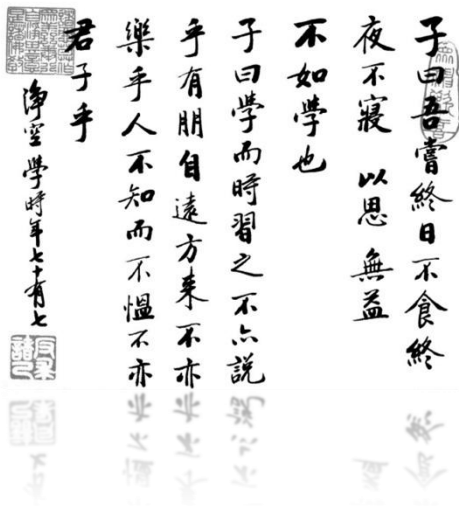 子曰吾嘗終日不食終
夜不寢以思無益
不如學也
子曰學而時習之不亦說
乎有朋自遠方来不亦
樂乎人不知而不慍不亦
君子乎
淨空學時年七十有七